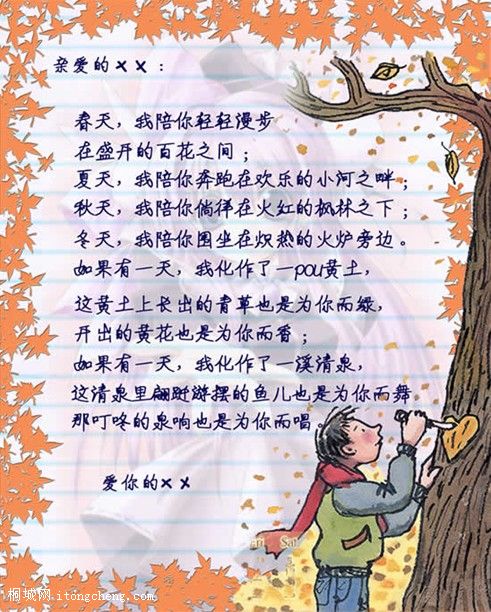 亲爱的××：
春天，我陪你轻轻漫步
在盛开的百花之间；
夏天，我陪你奔跑在欢乐的小河之畔；
秋天，我陪你倘徉在火红的枫林之下；
冬天，我陪你围坐在炽热的火炉旁边。
如果有一天，我化作了一pou黄土，
这黄土上长出的青草也是为你而绿，
开出的黄花也是为你而香；
如果有一天，我化作了一溪清泉，
这清泉里翩跹游摆的鱼儿也是为你而舞
那叮咚的泉响也是为你而唱。
爱你的××
桐城网.itongcheng.com